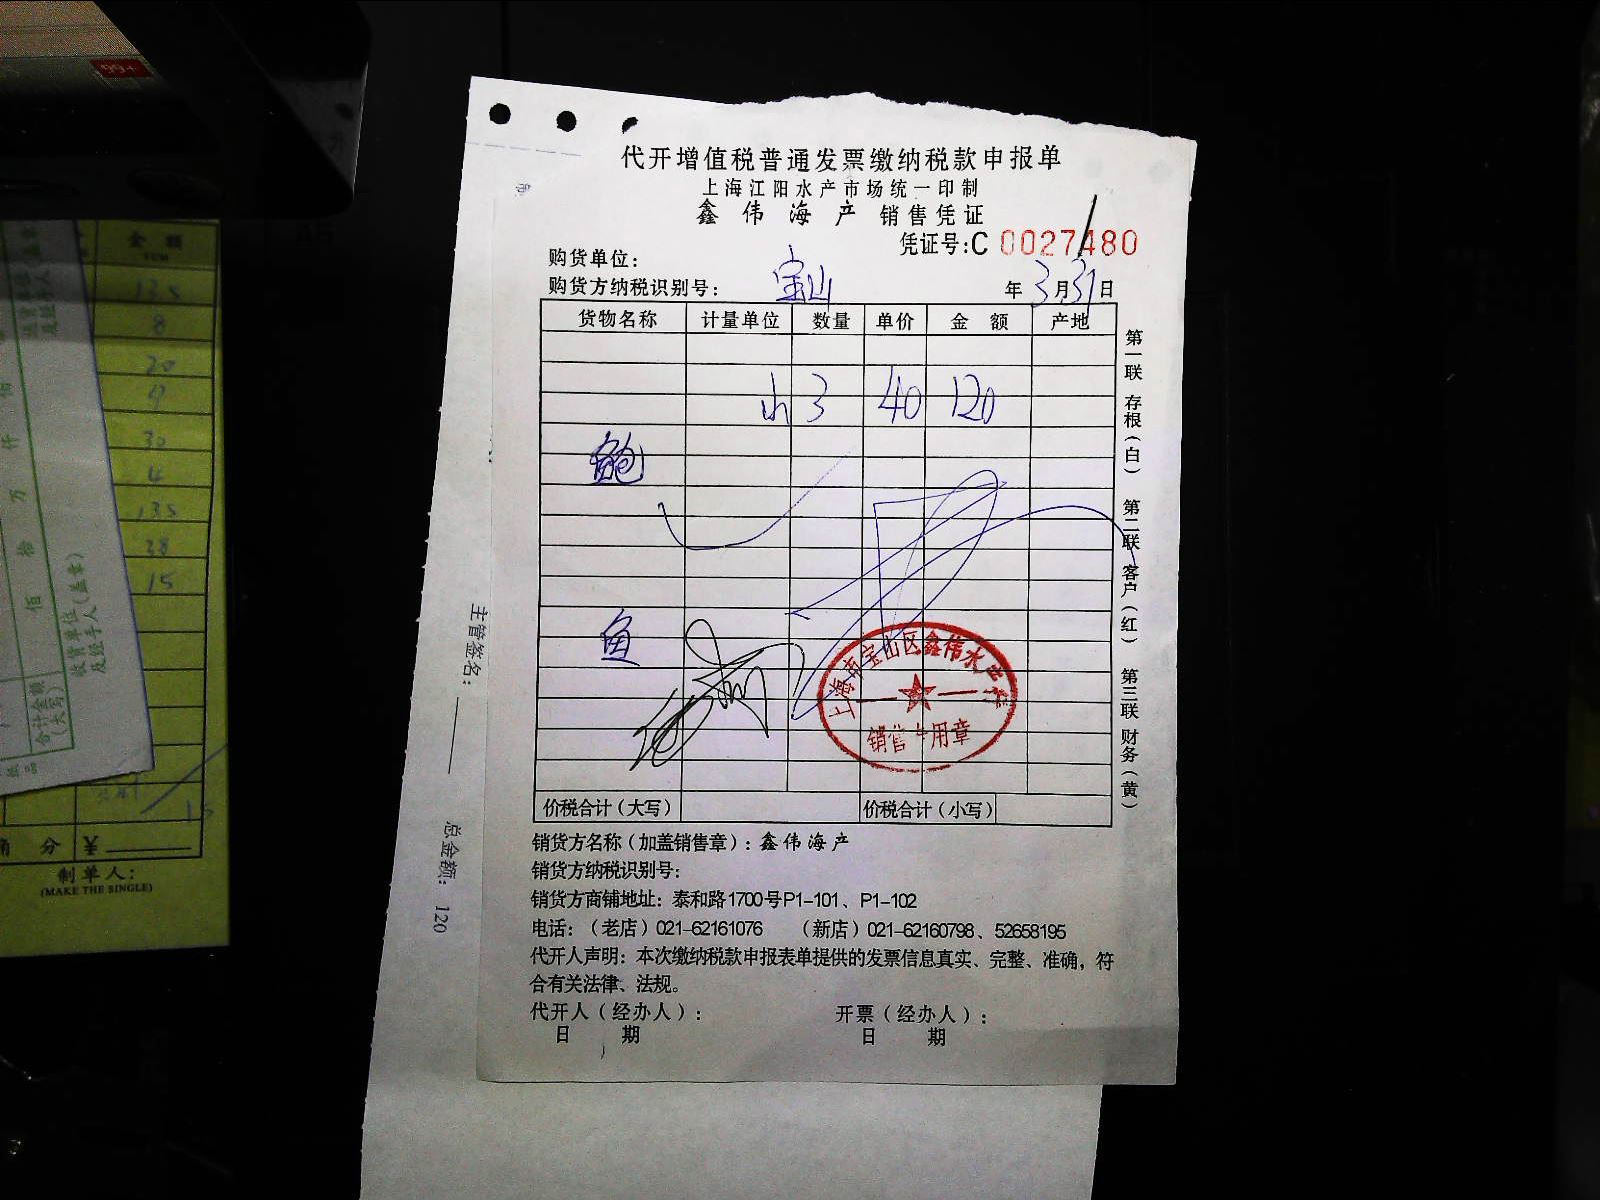 代开增值税普通发票缴纳税款申报单
上海江阳水产市场统一印制
鑫伟海产 销售凭证
凭证号:C 0027480
购货单位:
购货方纳税识别号: 宝山 年 3月31日
货物名称 计量单位 数量 单价 金额 产地
3 40 120
鲍
鱼
上海市宝山区鑫伟水产
销售专用章
价税合计(大写) 价税合计(小写)
销货方名称(加盖销售章):鑫伟海产
销货方纳税识别号:
销货方商铺地址:泰和路1700号P1-101、P1-102
电话:(老店)021-62161076 (新店)021-62160798、52658195
代开人声明:本次缴纳税款申报表单提供的发票信息真实、完整、准确,符
合有关法律、法规。
代开人(经办人): 开票(经办人):
日 期 日 期
第一联 存根(白) 第二联 客户(红) 第三联 财务(黄)
主管签名:
总金额: 120
99+
金额
135
8
20
30
4
135
38
15
佰
拾
万
仟
收货单位(盖章)
及经手人
合计金额
(大写)
分 ¥
制单人:
(MAKE THE SINGLE)